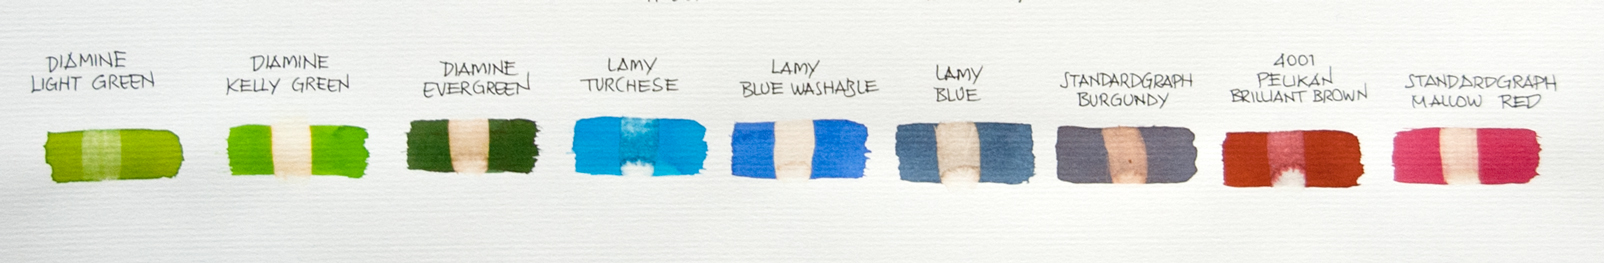 DIAMINE
LIGHT GREEN
DIAMINE
KELLY GREEN
DIAMINE
EVERGREEN
LAMY
TURCHESE
LAMY
BLUE WASHABLE
LAMY
BLUE
STANDARDGRAPH
BURGUNDY
4001
PELIKAN
BRILLIANT BROWN
STANDARDGRAPH
MALLOW RED